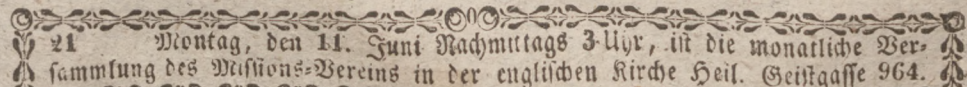 21 Montag, den 11. Juni Nachmittags 3 Uhr, ist die monatliche Ver-
sammlung des Missions-Vereins in der englischen Kirche Heil. Geistgasse 964.